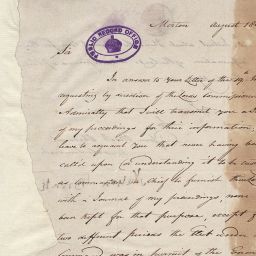 Morton August 18
Sir
PUBLIC RECORD OFFICE
In answer to Your Letter of the 19
requesting by direction of the Lords Commissione
Admiralty that I will transmit you a
of my proceedings for their information
leave to acquaint you that never having be
call'd upon (or understanding it to be cus
as Commander in Chief to furnish their Lo
with a Journal of my proceedings, none
been kept for that purpose, except f
two different periods the Fleet under
Command was in pursuit of the Enem